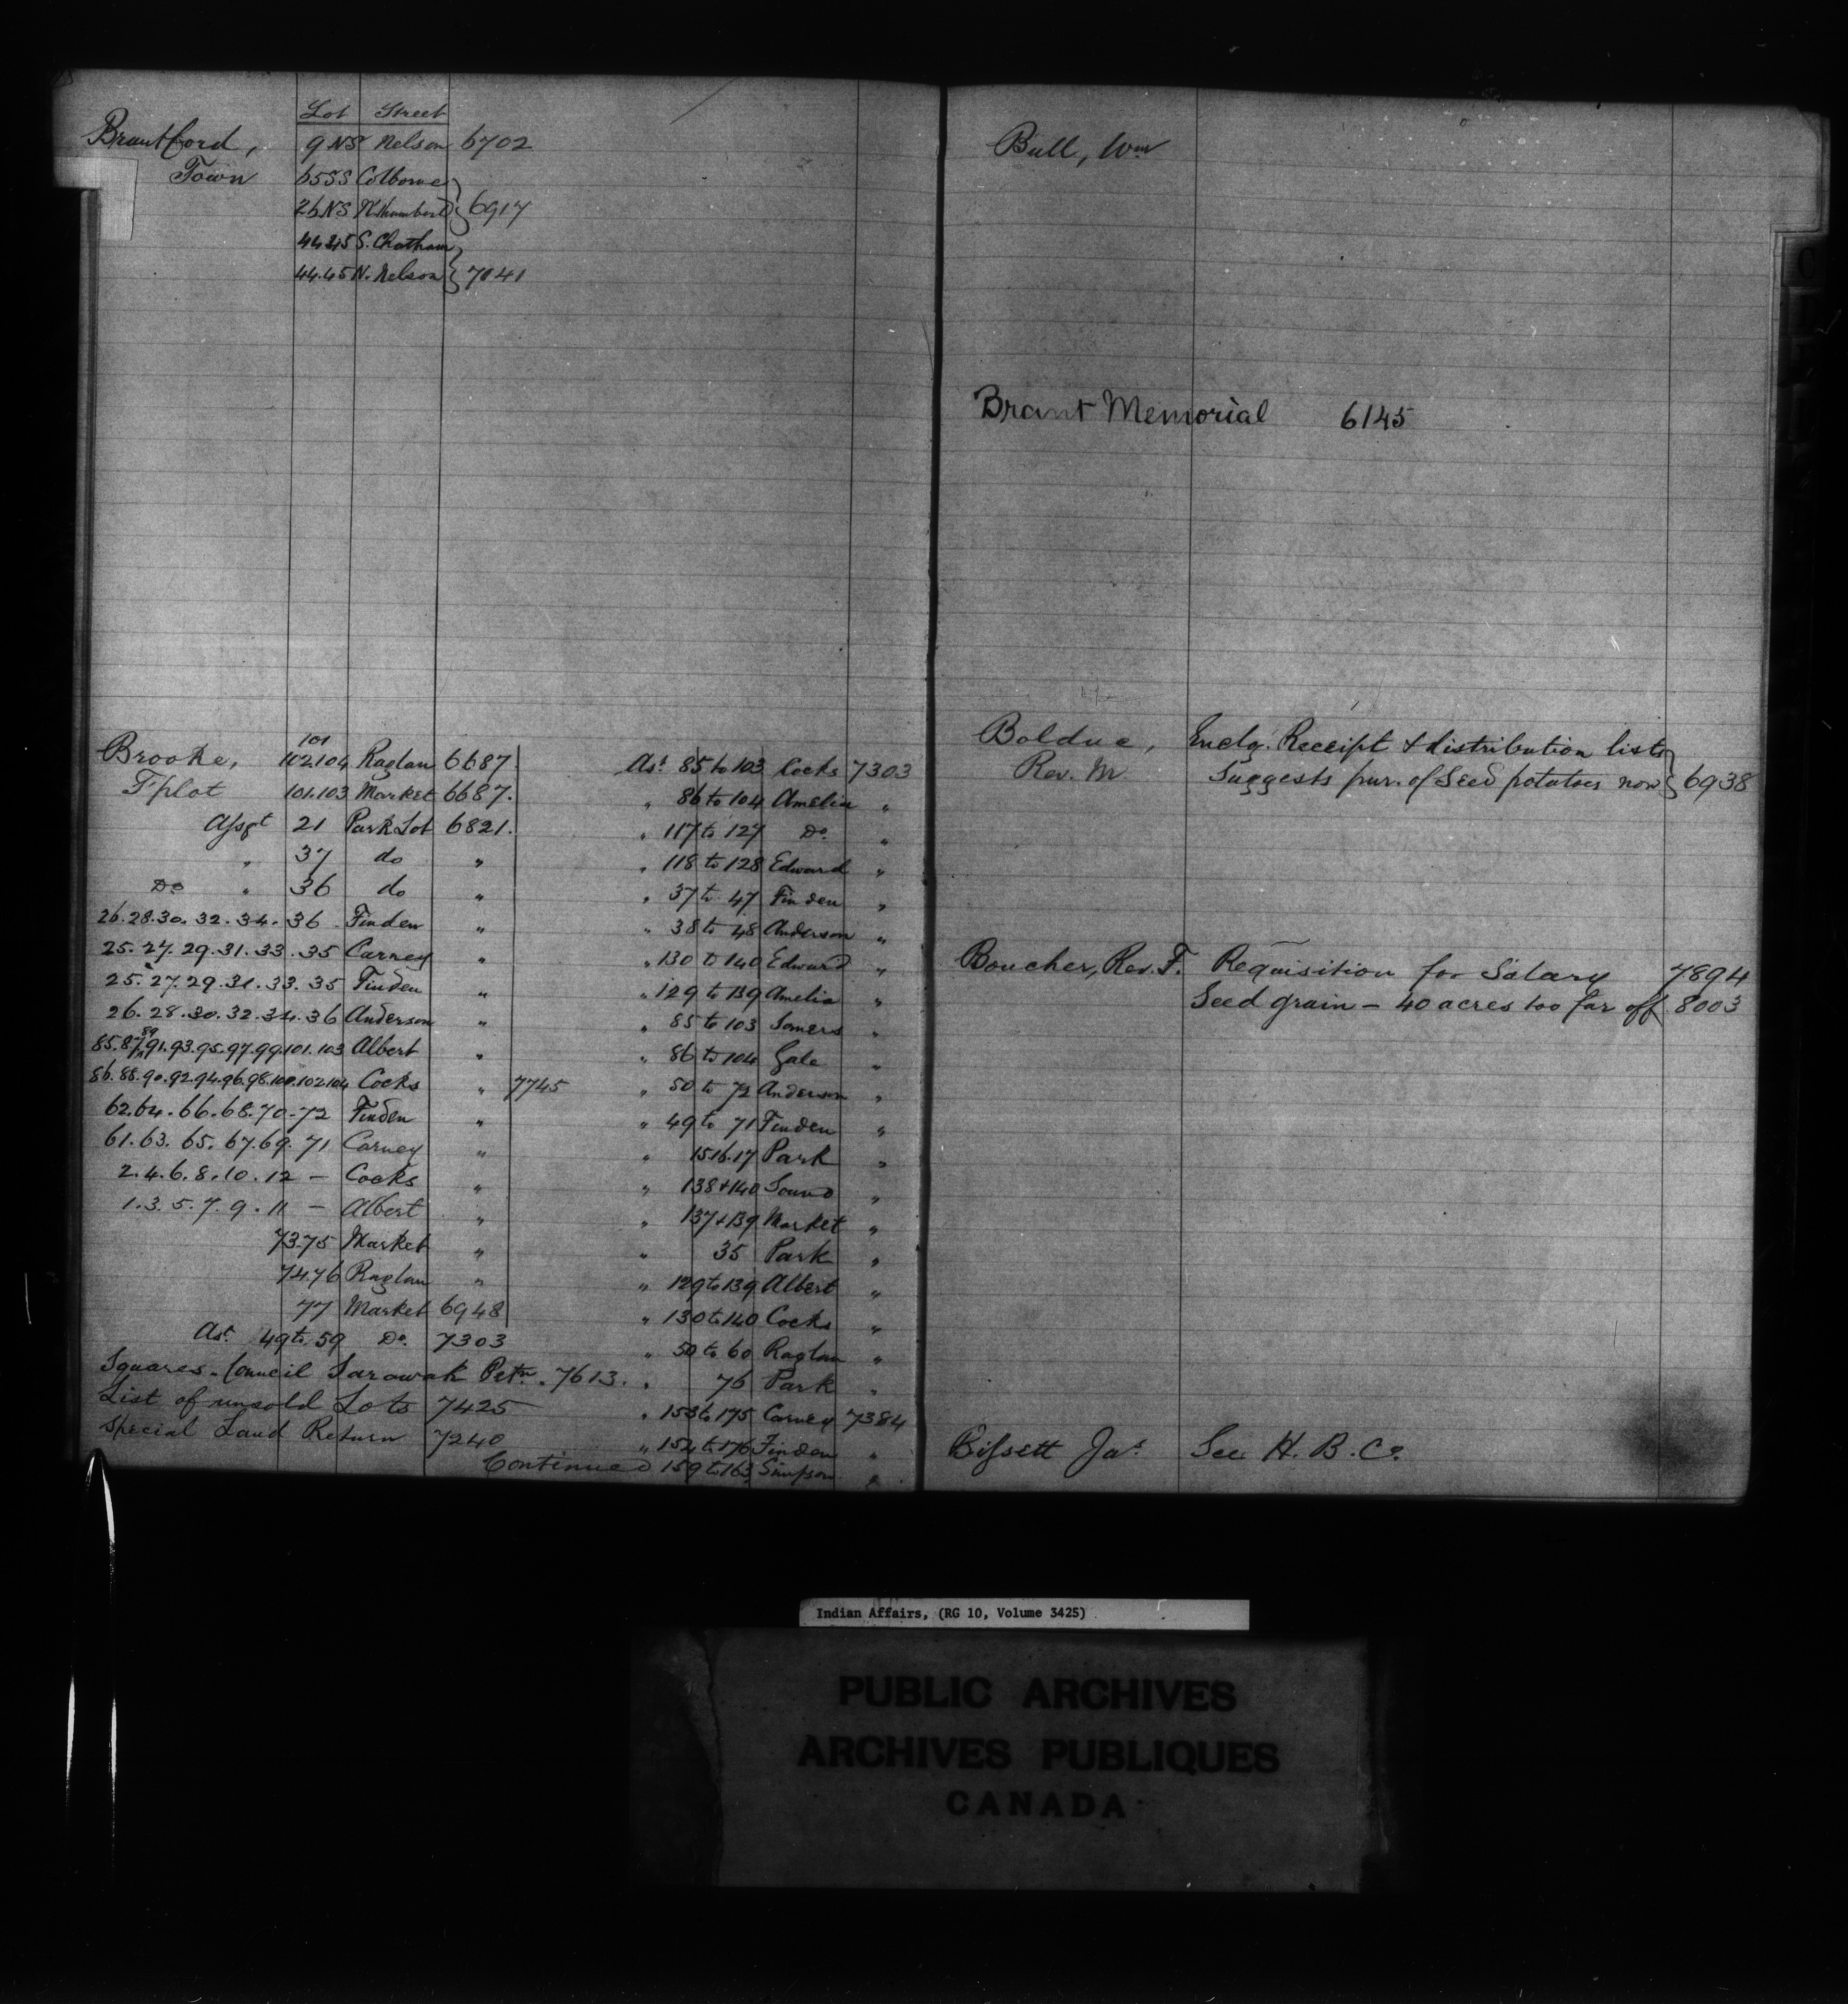 Lot Street
Brantford, 9 NS Nelson 6702
Town 65 SS Colborne
26 NS N.thumberld } 6917
44.45 S. Chatham
44.45 N. Nelson } 7041
101
Brooke, 102.104 Raglan 6687
T'plot 101.103 Market 6687.
Assgt 21 Park Lot 6821.
" 37 do "
Do " 36 do "
26.28.30.32.34.36 Finden "
25.27.29.31.33.35 Carney "
25.27.29.31.33.35 Finden "
26.28.30.32.34.36 Anderson "
85.87.89.91.93.95.97.99.101.103 Albert "
86.88.90.92.94.96.98.100.102.104 Cocks " 7745
62.64.66.68.70.72 Finden "
61.63.65.67.69.71 Carney "
2.4.6.8.10.12 — Cocks "
1.3.5.7.9.11 — Albert "
73.75 Market "
74.76 Raglan "
77 Market 6948
Ast. 49 to 59 Do. 7303
Squares. Council Sarawak Petn. 7613.
List of unsold Lots 7425
Special Land Return 7240
Ast. 85 to 103 Cocks 7303
" 86 to 104 Amelia "
" 117 to 127 Do. "
" 118 to 128 Edward "
" 37 to 47 Finden "
" 38 to 48 Anderson "
" 130 to 140 Edward "
" 129 to 139 Amelia "
" 85 to 103 Somers "
" 86 to 104 Gale "
" 50 to 72 Anderson "
" 49 to 71 Finden "
" 15.16.17 Park "
" 138 + 140 Sound "
" 137 + 139 Market "
" 35 Park "
" 129 to 139 Albert "
" 130 to 140 Cocks "
" 50 to 60 Raglan "
" 76 Park "
" 153 to 175 Carney 7384
" 154 to 176 Finden "
Continued 159 to 163 Simpson "
Bull, Wm
Brant Memorial 6145
Bolduc, Enclg. Receipt & distribution lists
Rev. M Suggests pur. of Seed potatoes now } 6938
Boucher, Rev. F. Requisition for Salary 7894
Seed grain – 40 acres too far off 8003
Bissett Jas. See H. B. Co.
Indian Affairs, (RG 10, Volume 3425)
PUBLIC ARCHIVES
ARCHIVES PUBLIQUES
CANADA